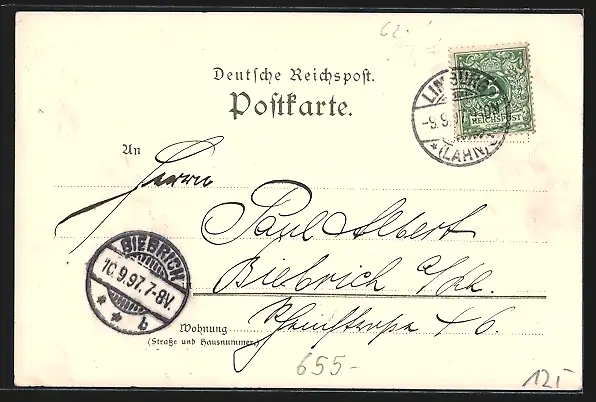 62.
Deutsche Reichspost.
Postkarte.
LIMBURG
-9.9.97. 9-10N
*(LAHN)
REICHSPOST
An
Herrn
Paul Albert
Biebrich a/Rh.
BIEBRICH
10.9.97. 7-8V.
* * b
Wohnung
(Straße und Hausnummer)
46.
655-
125